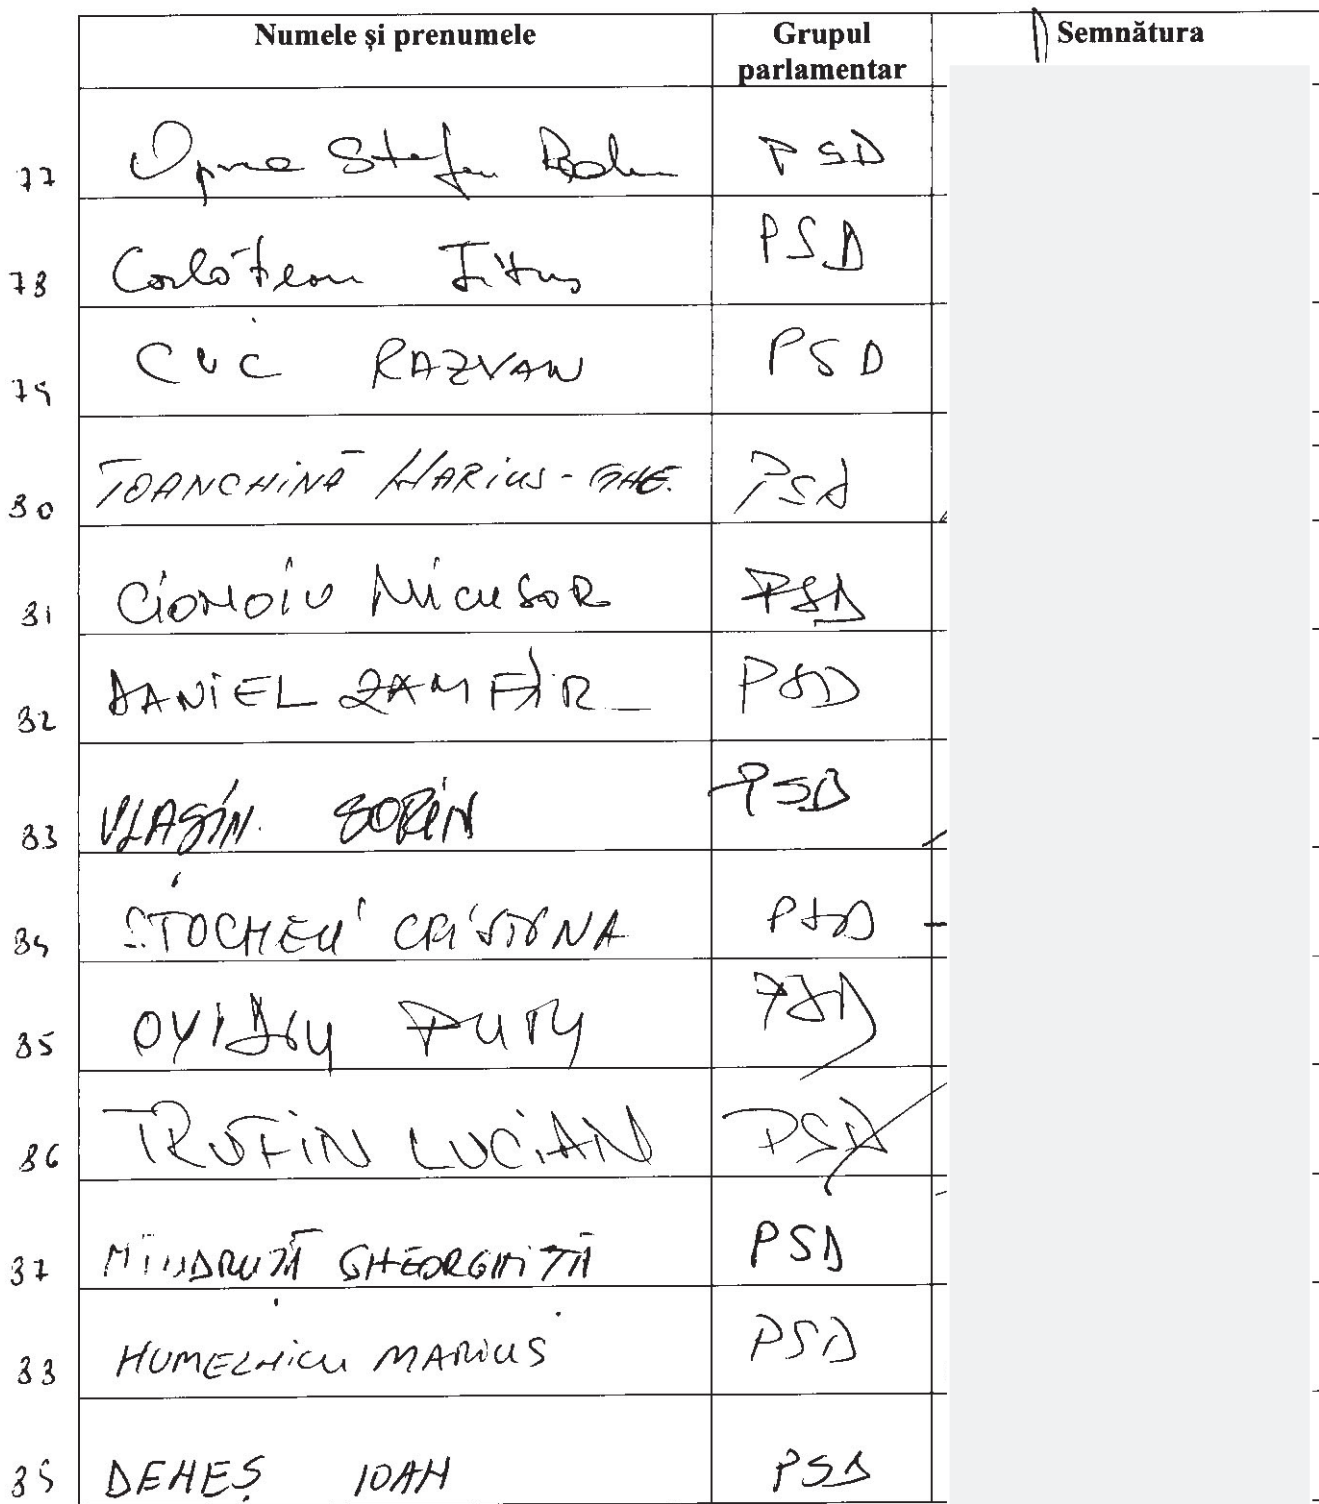 Numele și prenumele Grupul parlamentar Semnătura
77 Oprea Stefan Radu PSD
78 Corlățean Titus PSD
79 CUC RAZVAN PSD
80 TOANCHINĂ MARIUS-GHE. PSD
81 CIONOIU NICUSOR PSD
82 DANIEL ZAMFIR PSD
83 VLASIN SORIN PSD
84 CRISTINA PSD
85 OVIDIU PUIU PSD
86 TRUFIN LUCIAN PSD
87 MÎNDRUȚĂ GHEORGHIȚĂ PSD
88 HUMELNICU MARIUS PSD
89 DENEȘ IOAN PSD